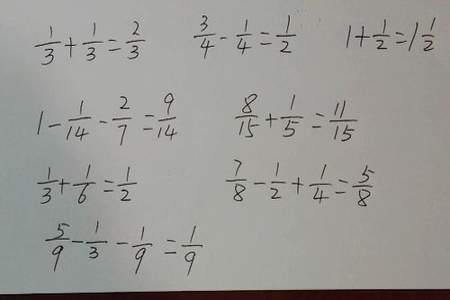 1/3 + 1/3 = 2/3 3/4 - 1/4 = 1/2 1 + 1/2 = 1 1/2
1 - 1/14 - 2/7 = 9/14 8/15 + 1/5 = 11/15
1/3 + 1/6 = 1/2 7/8 - 1/2 + 1/4 = 5/8
5/9 - 1/3 - 1/9 = 1/9